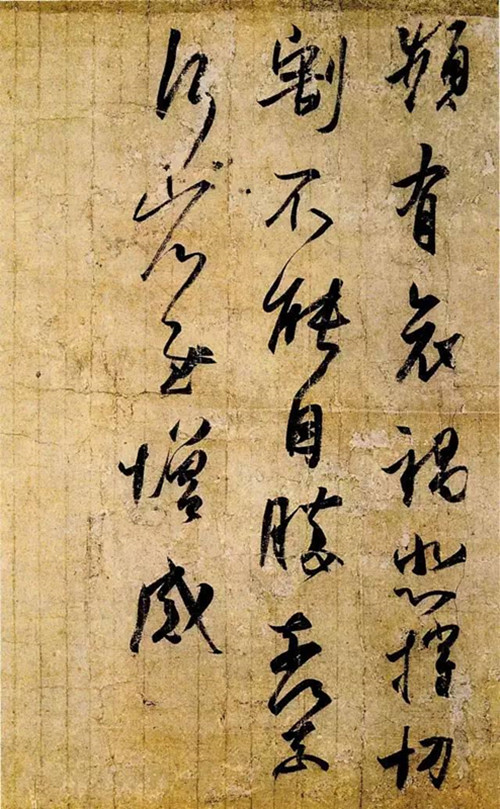 频有哀禍悲摧切
割不能自勝奈何奈
何省慰增感